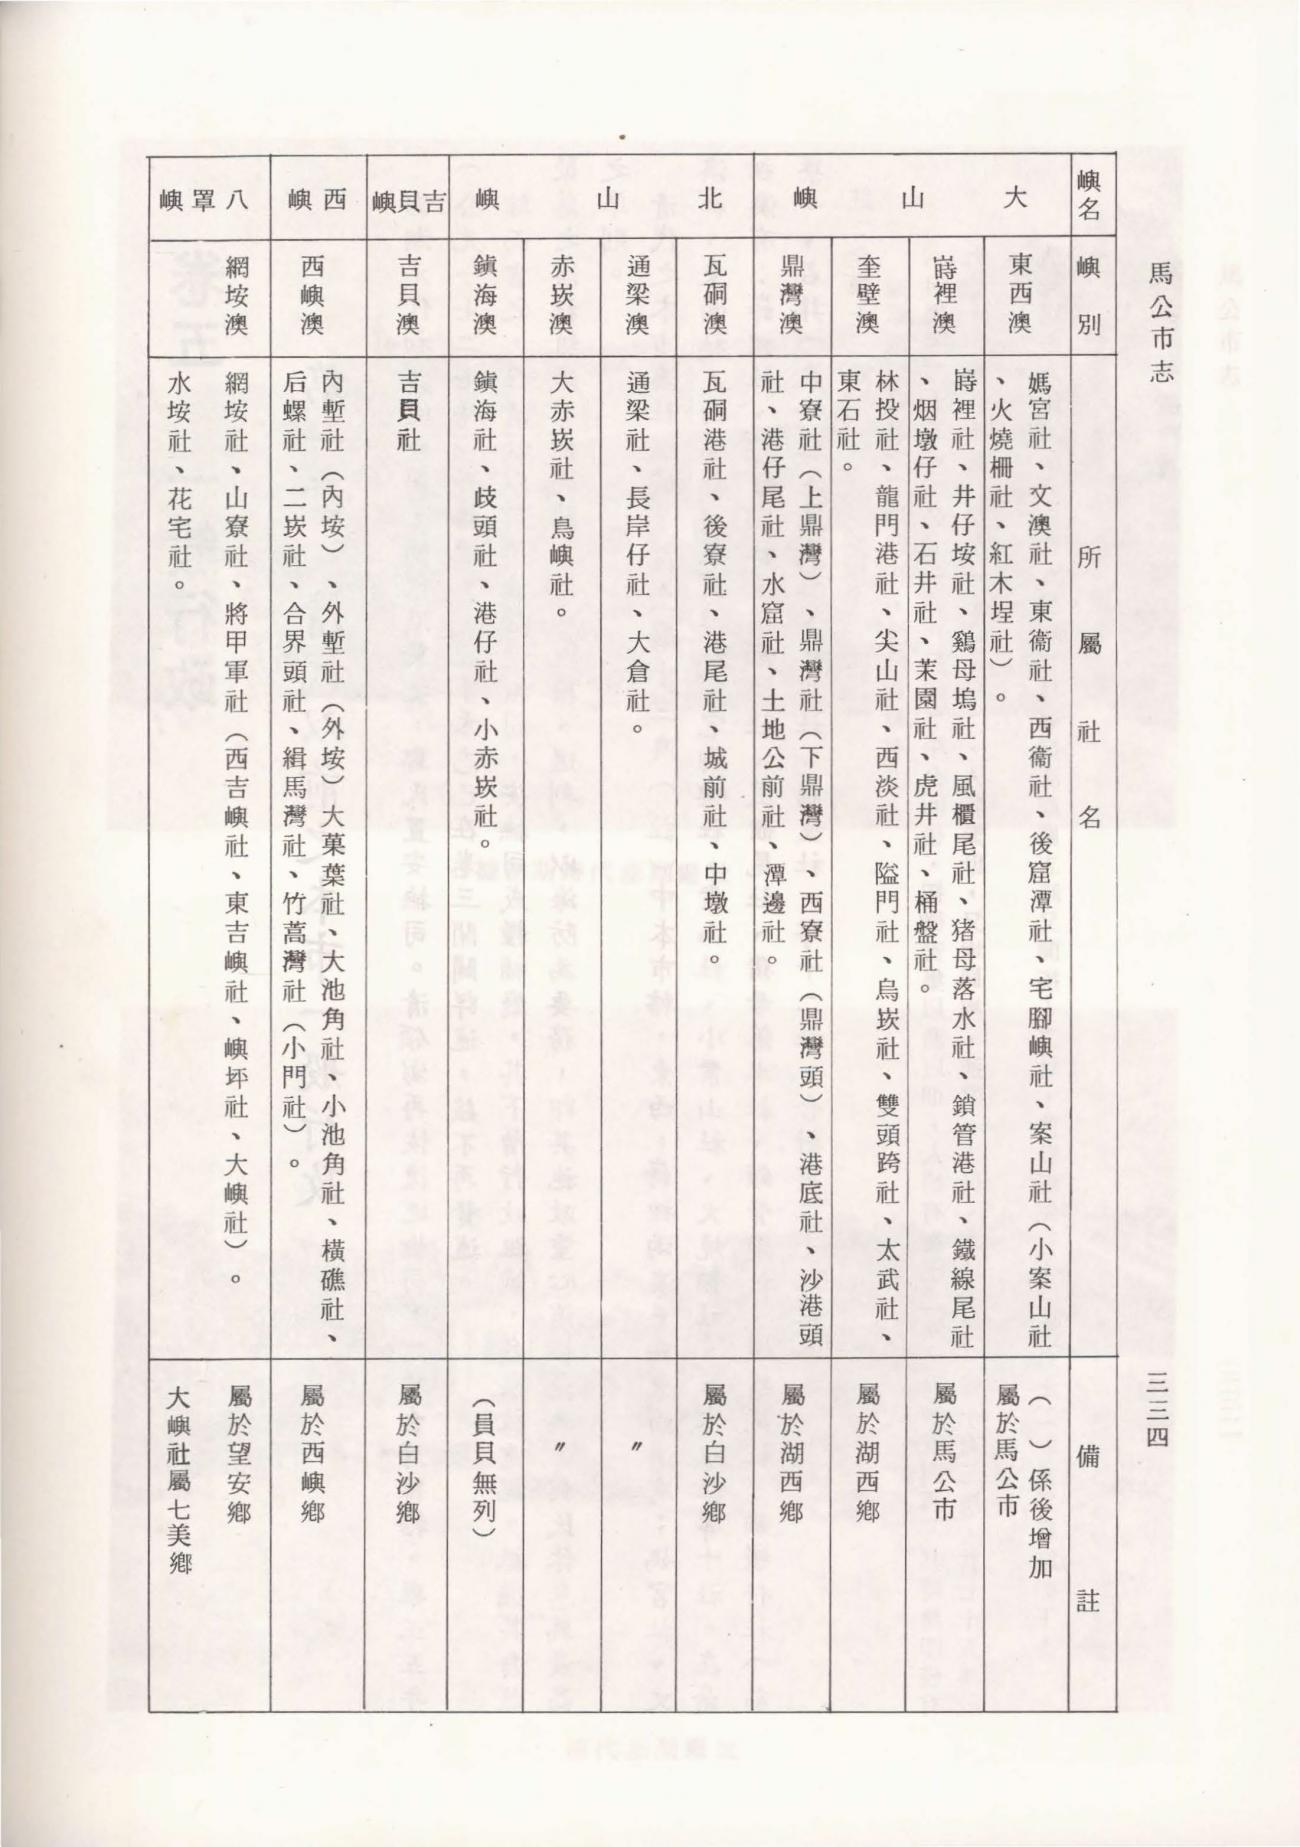 馬公市志
三三四
嶼名
嶼別
所屬社名
備註
大山嶼
東西澳
媽宮社、文澳社、東衞社、西衞社、後窟潭社、宅腳嶼社、案山社（小案山社
、火燒柵社、紅木埕社）。
（　）係後增加
屬於馬公市
嵵裡澳
嵵裡社、井仔垵社、鷄母塢社、風櫃尾社、猪母落水社、鎖管港社、鐵線尾社
、烟墩仔社、石井社、茉園社、虎井社、桶盤社。
屬於馬公市
奎壁澳
林投社、龍門港社、尖山社、西淡社、隘門社、烏崁社、雙頭跨社、太武社、
東石社。
屬於湖西鄉
鼎灣澳
中寮社（上鼎灣）、鼎灣社（下鼎灣）、西寮社（鼎灣頭）、港底社、沙港頭
社、港仔尾社、水窟社、土地公前社、潭邊社。
屬於湖西鄉
北山嶼
瓦硐澳
瓦硐港社、後寮社、港尾社、城前社、中墩社。
屬於白沙鄉
通梁澳
通梁社、長岸仔社、大倉社。
〃
赤崁澳
大赤崁社、鳥嶼社。
〃
鎮海澳
鎮海社、歧頭社、港仔社、小赤崁社。
（員貝無列）
吉貝嶼
吉貝澳
吉貝社
屬於白沙鄉
西嶼
西嶼澳
內塹社（內垵）、外塹社（外垵）大菓葉社、大池角社、小池角社、橫礁社、
后螺社、二崁社、合界頭社、緝馬灣社、竹蒿灣社（小門社）。
屬於西嶼鄉
八罩嶼
網垵澳
網垵社、山寮社、將甲軍社（西吉嶼社、東吉嶼社、嶼坪社、大嶼社）。
水垵社、花宅社。
屬於望安鄉
大嶼社屬七美鄉